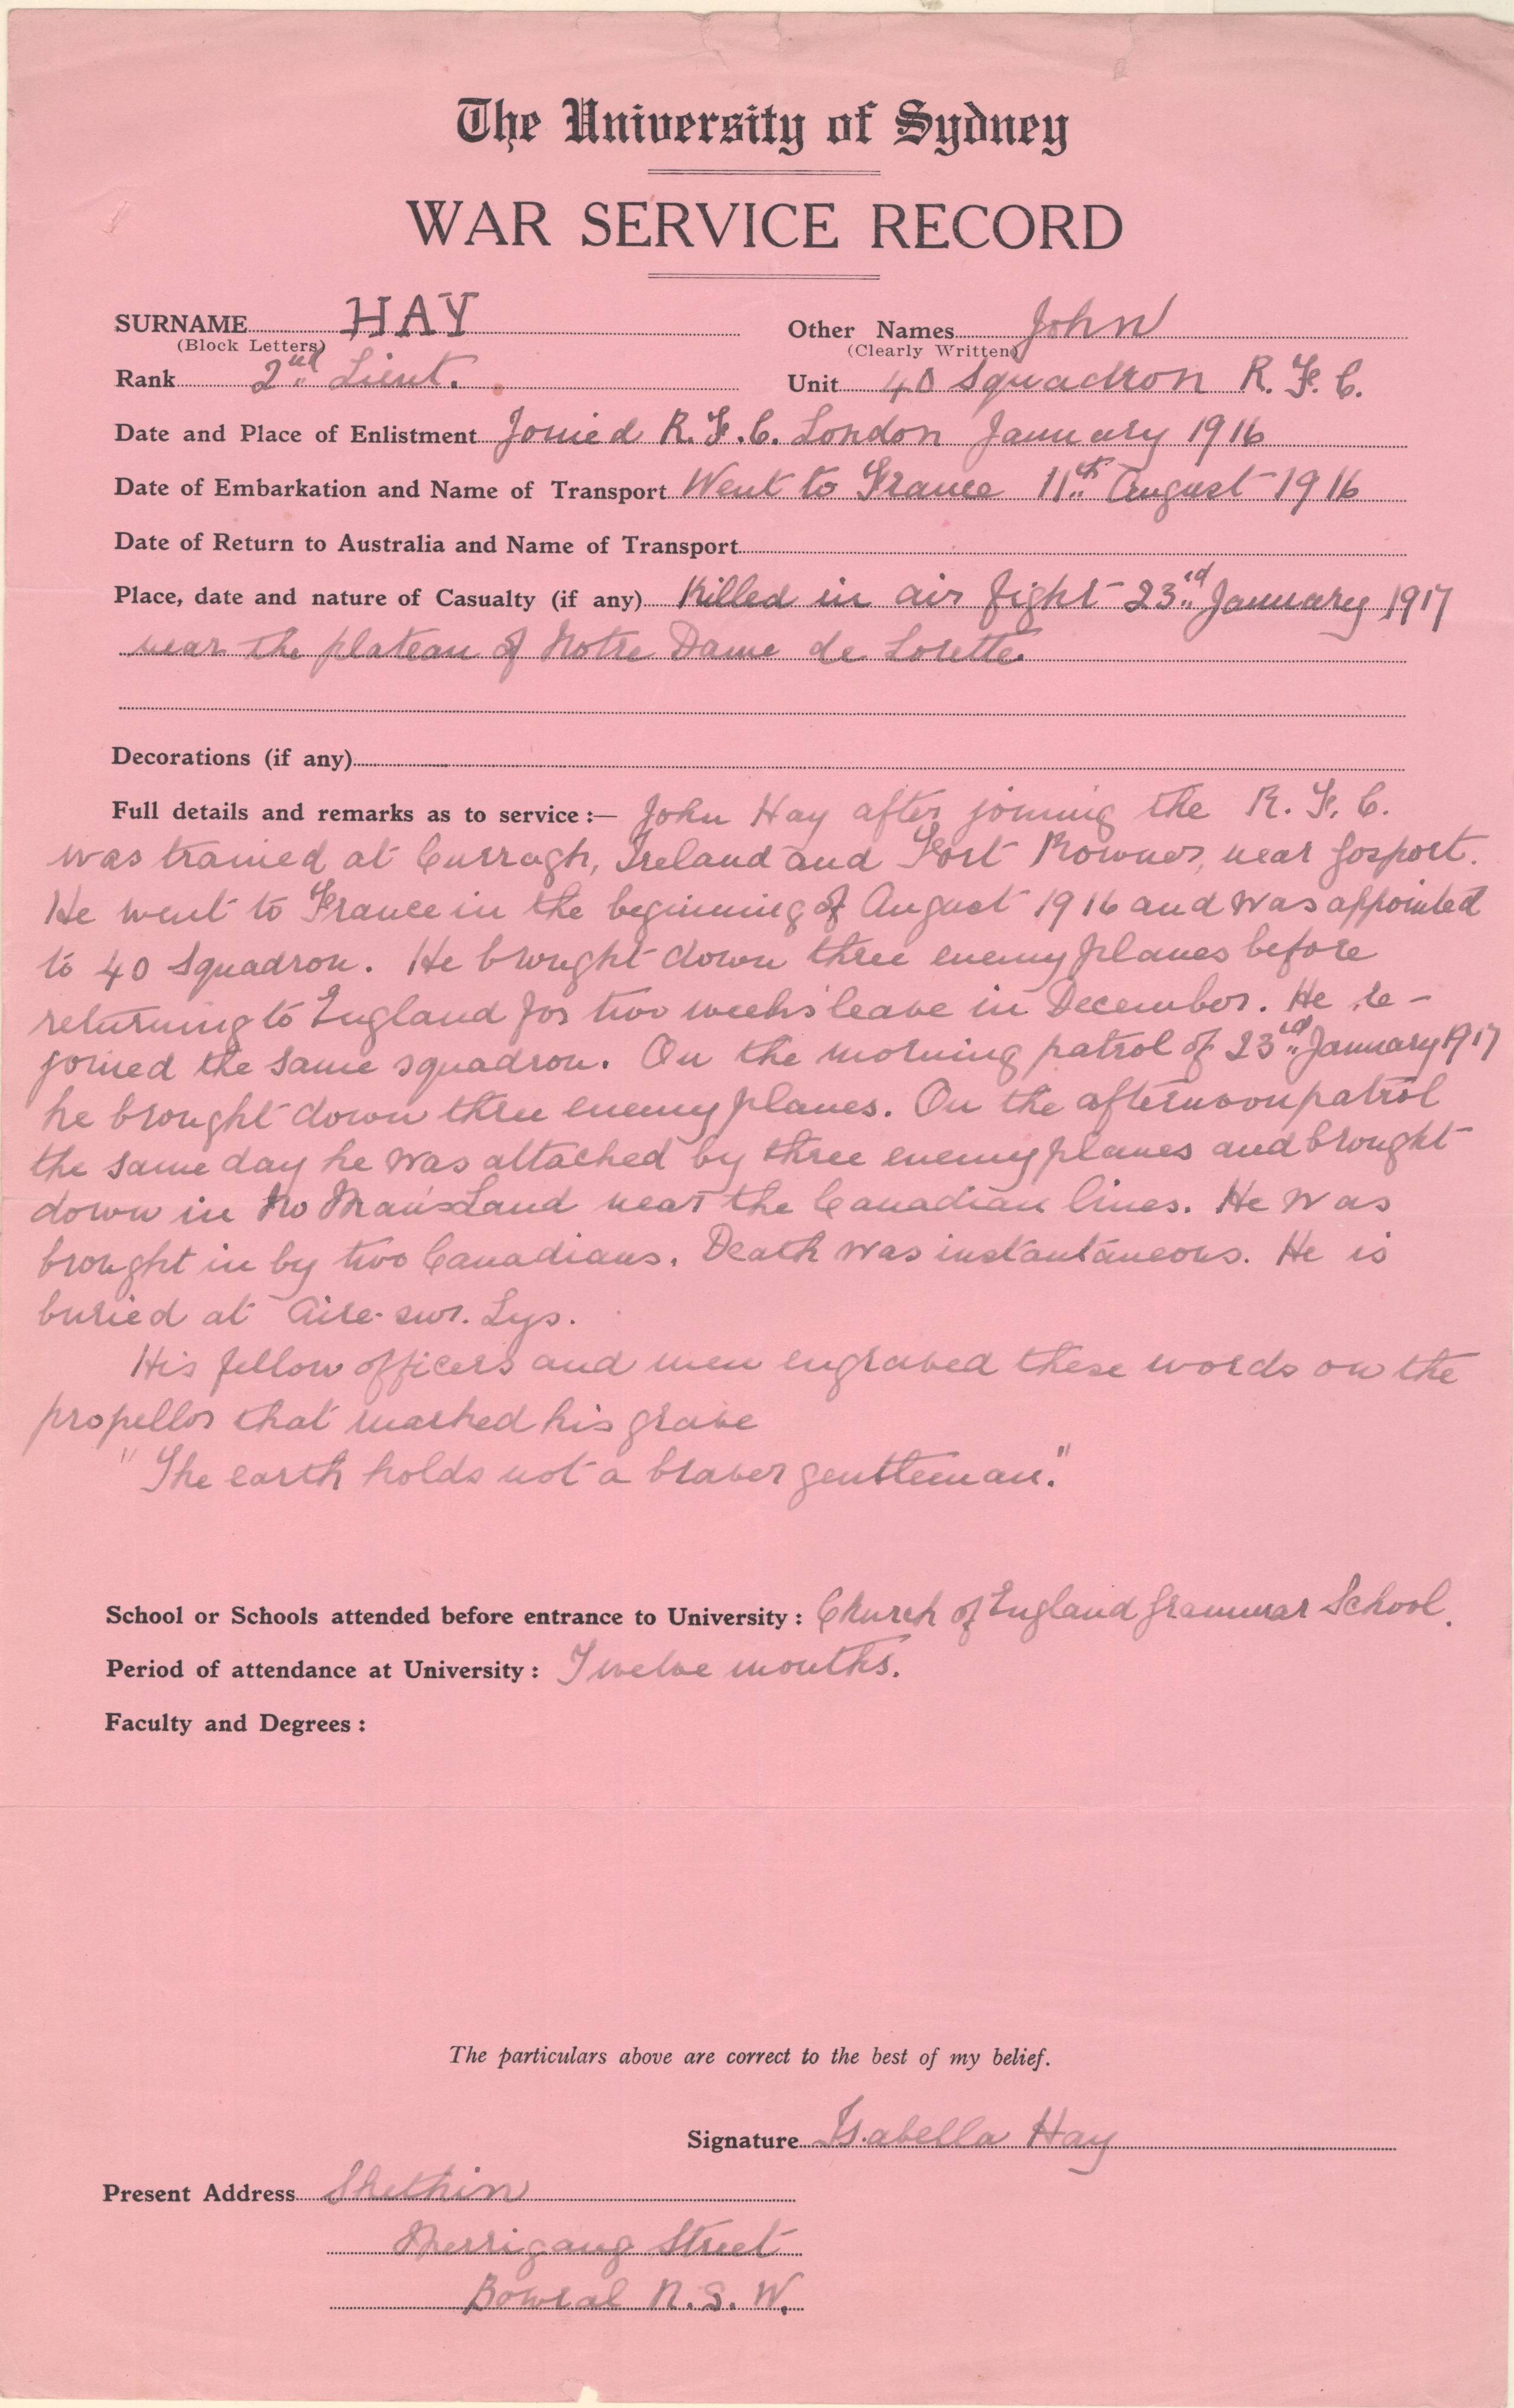 The University of Sydney
WAR SERVICE RECORD
SURNAME HAY Other Names John
(Block Letters) (Clearly Written)
Rank 2nd Lieut. Unit 40 Squadron R. F. C.
Date and Place of Enlistment Joined R. F. C. London January 1916
Date of Embarkation and Name of Transport Went to France 11th August 1916
Date of Return to Australia and Name of Transport
Place, date and nature of Casualty (if any) Killed in air fight 23rd January 1917
near the plateau of Notre Dame de Lorette.
Decorations (if any)
Full details and remarks as to service :— John Hay after joining the R. F. C.
was trained at Curragh, Ireland and Fort Rowner, near Gosport.
He went to France in the beginning of August 1916 and was appointed
to 40 Squadron. He brought down three enemy planes before
returning to England for two weeks' leave in December. He re-
joined the same squadron. On the morning patrol of 23rd January 1917
he brought down three enemy planes. On the afternoon patrol
the same day he was attacked by three enemy planes and brought
down in No Man's Land near the Canadian lines. He was
brought in by two Canadians. Death was instantaneous. He is
buried at Aire-sur-Lys.
His fellow officers and men engraved these words on the
propellor that marked his grave
"The earth holds not a braver gentleman."
School or Schools attended before entrance to University : Church of England Grammar School.
Period of attendance at University : Twelve months.
Faculty and Degrees :
The particulars above are correct to the best of my belief.
Signature Isabella Hay
Present Address
Merrigang Street
Bowral N. S. W.